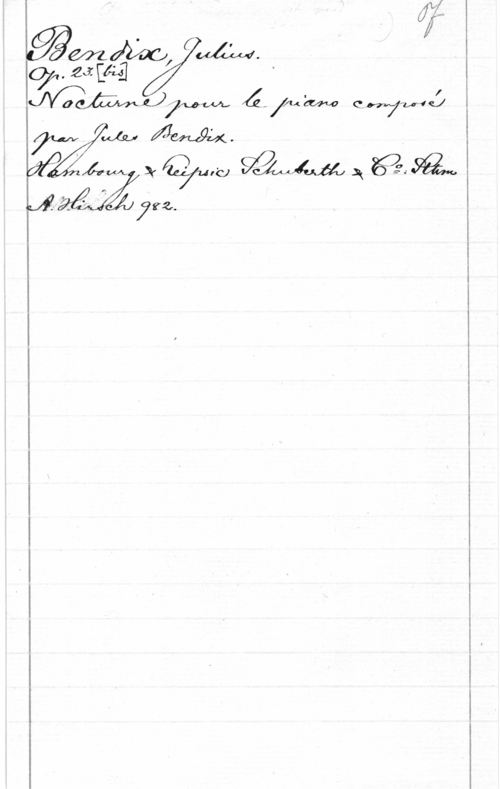 Pf
Bendix, Julius.
Op. 23. [bis]
Nocturne pour le piano composé
par Jules Bendix.
Hambourg & Leipsic Schuberth & Co. Sthm
A. Hirsch 982.